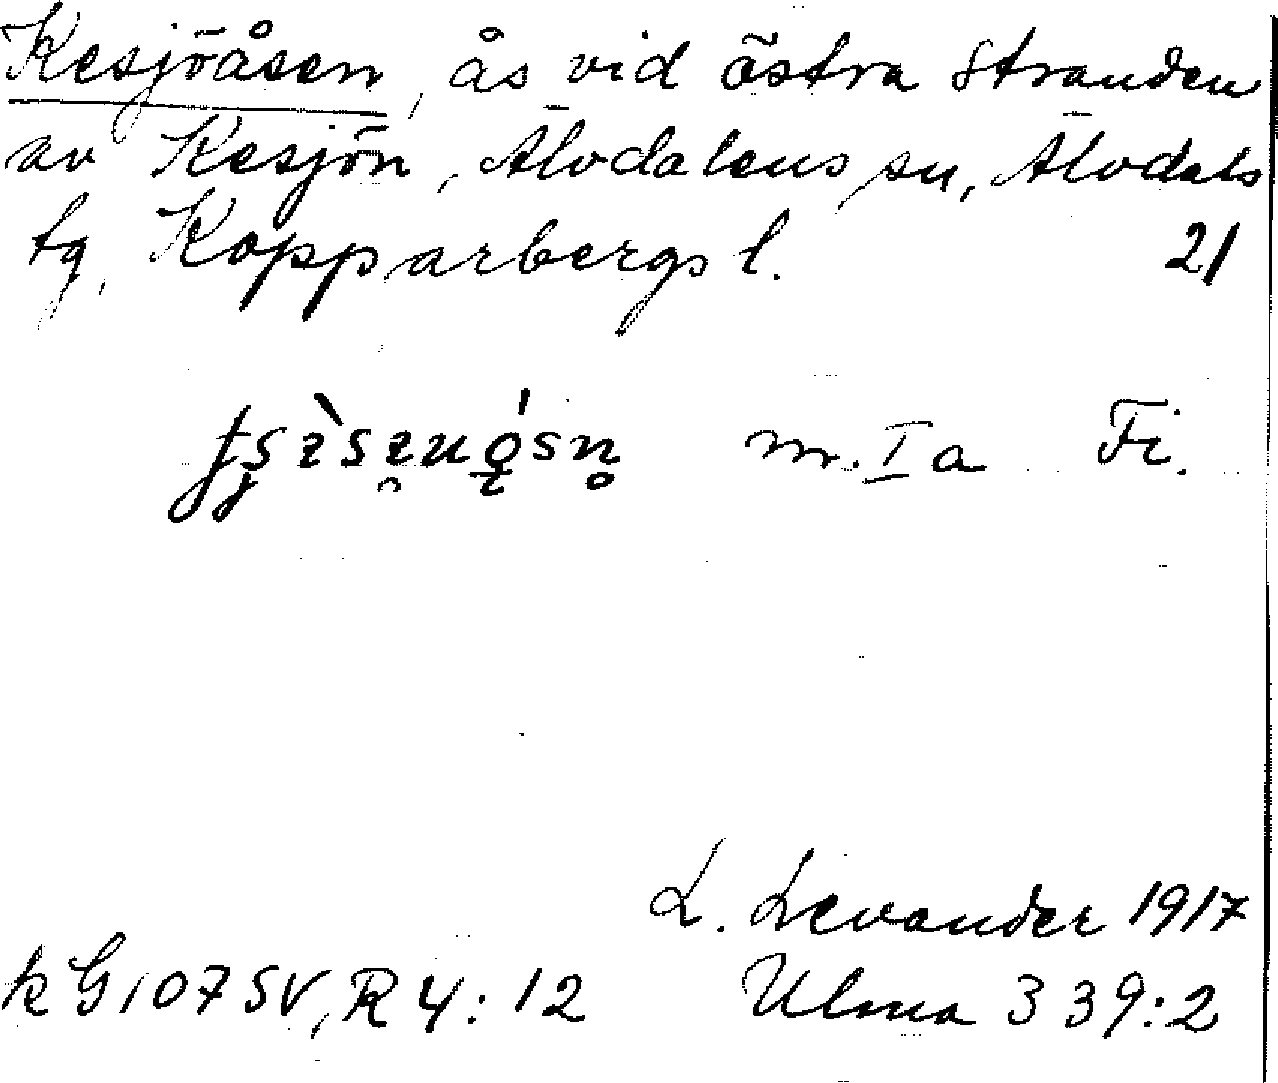 Kesjöåsen, ås vid östra stranden
av Kesjön, Älvdalens sn, Älvdals
tg, Kopparbergs l. 21
m. Ia Fi.
L. Levander 1917
k G 107 SV, R 4:12 Ulma 339:2